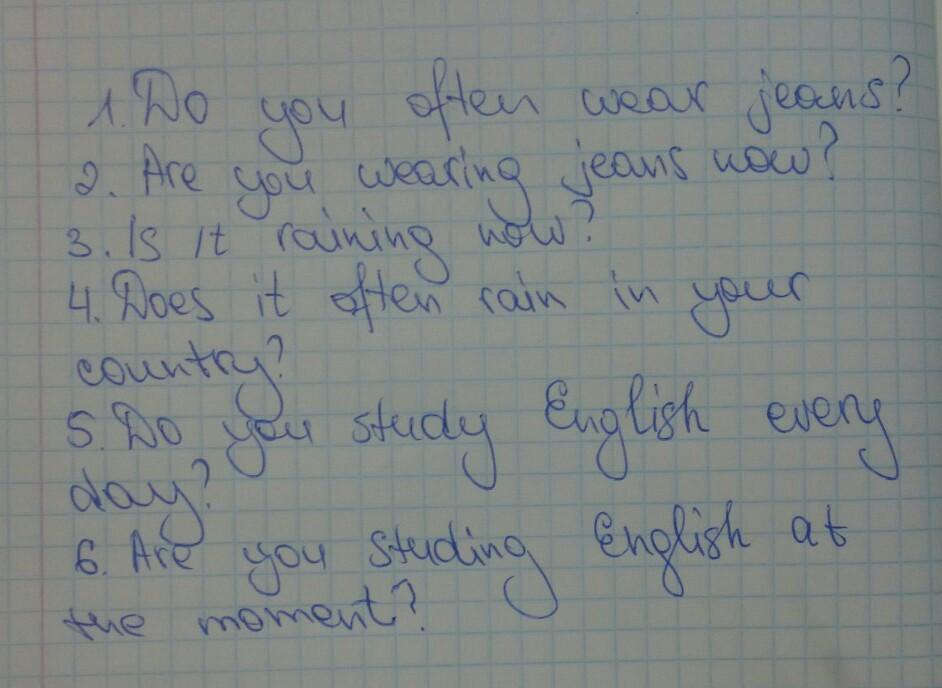 1. Do you often wear jeans?
2. Are you wearing jeans now?
3. Is it raining now?
4. Does it often rain in your
country?
5. Do you study English every
day?
6. Are you studing English at
the moment?